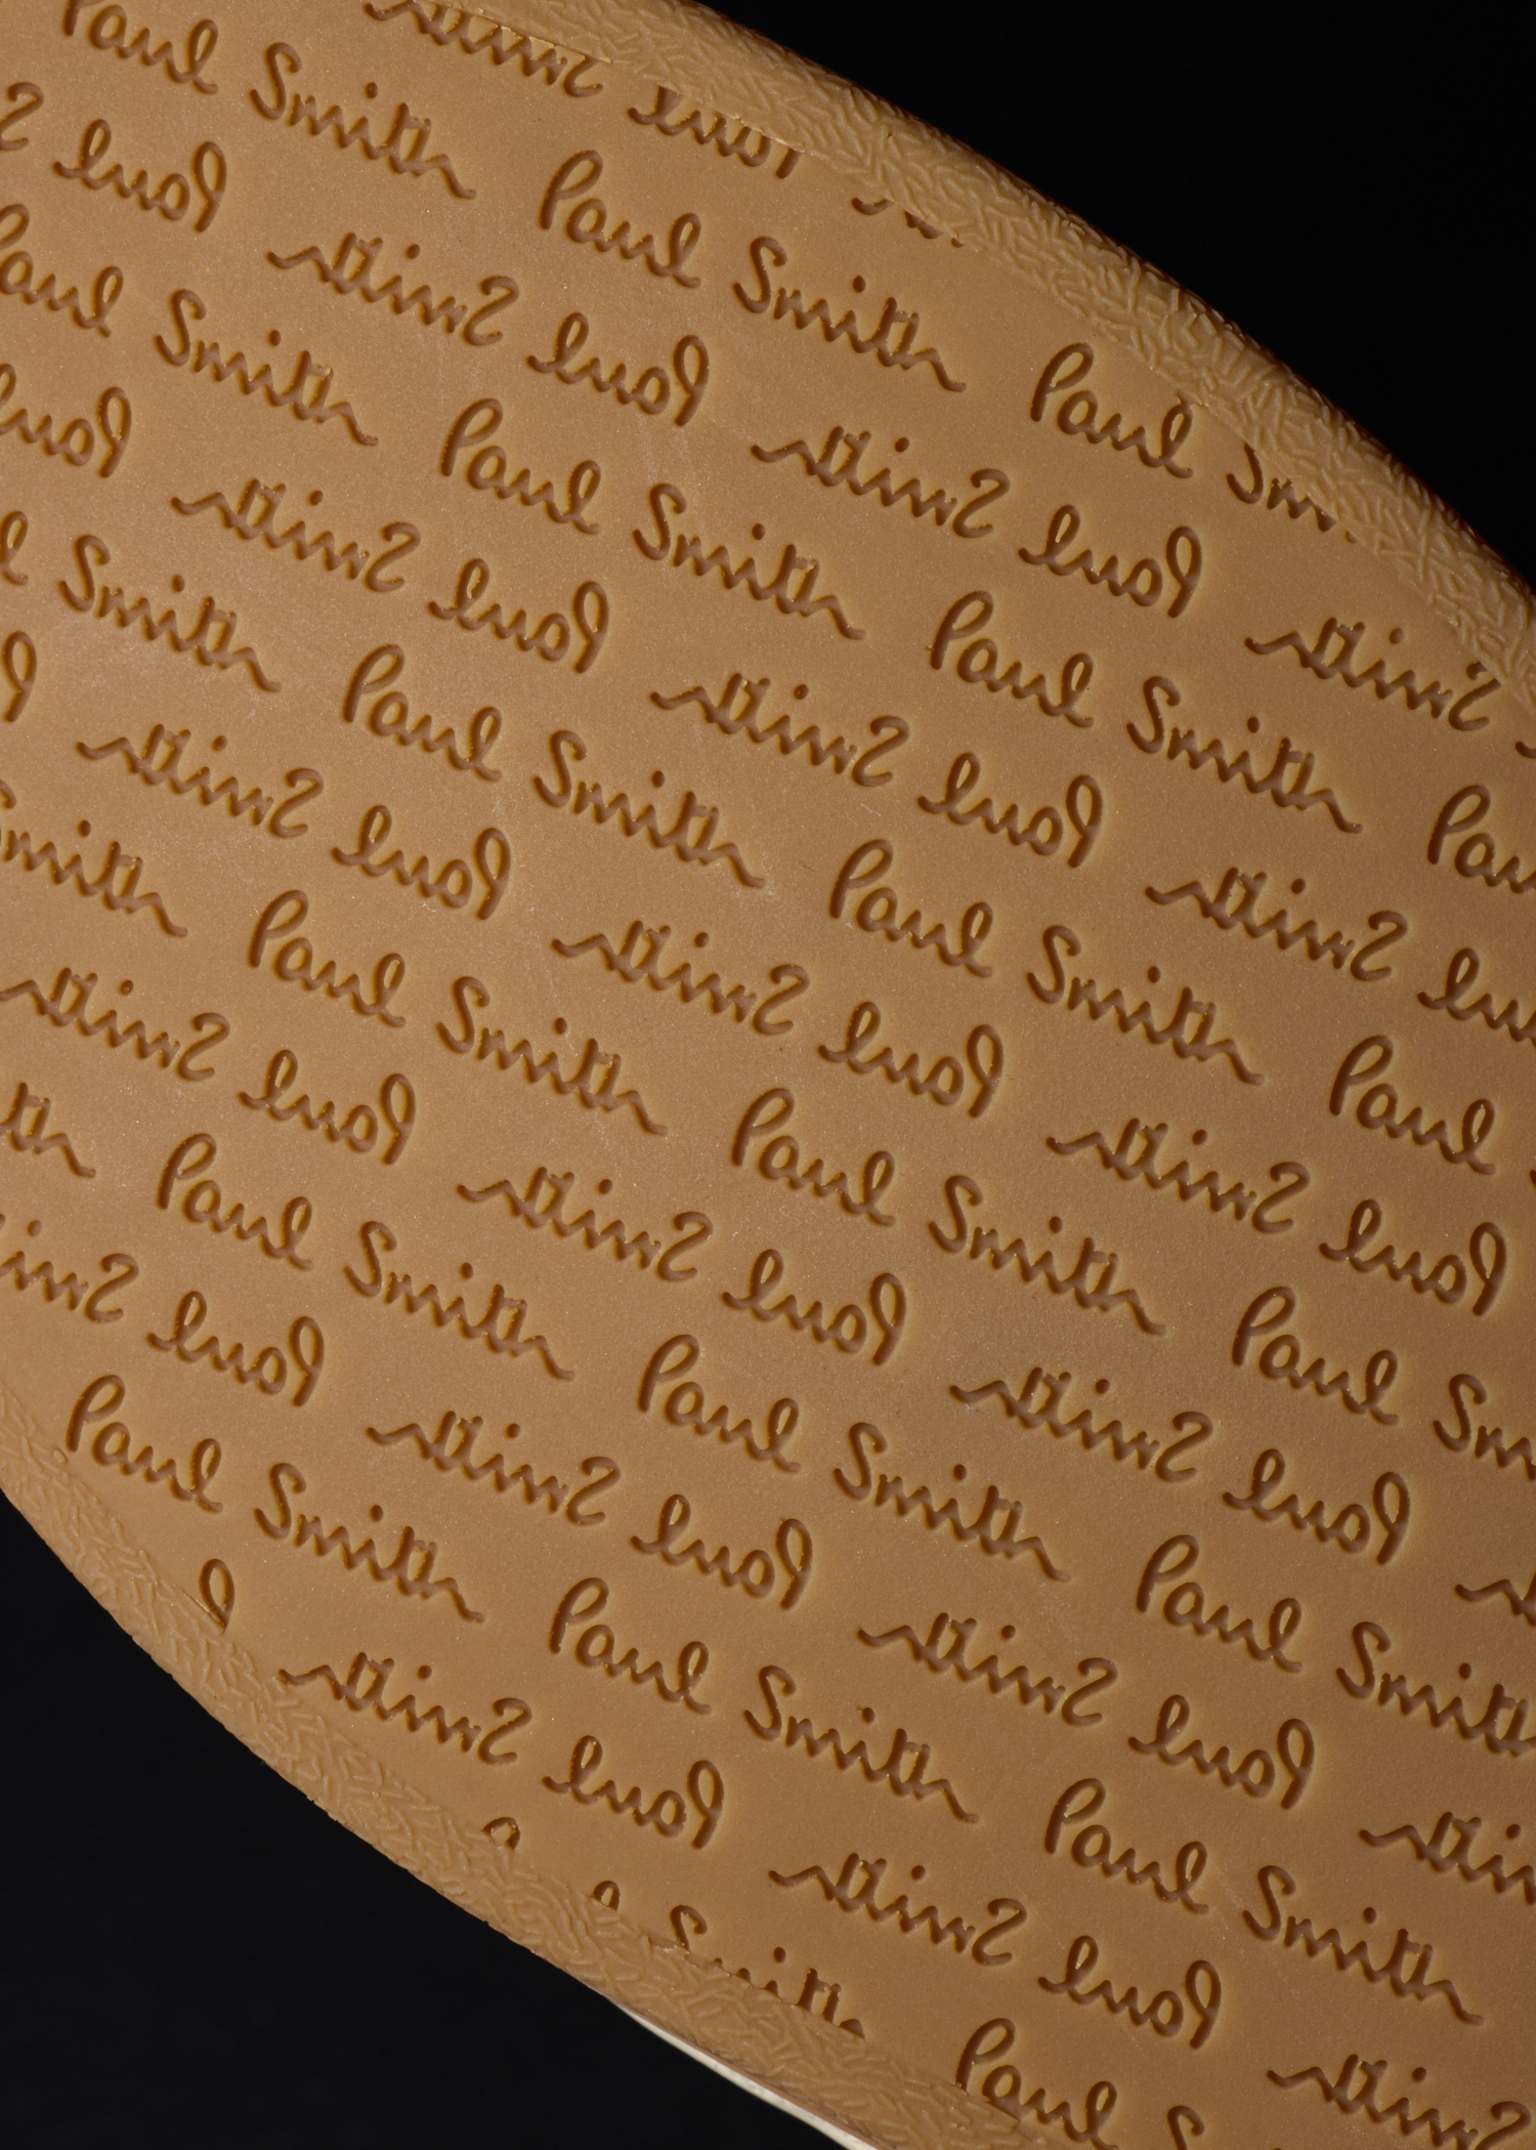 Paul Smith
Paul Smith Paul Smith Paul
Smith Paul Smith Paul Smith Paul
Paul Smith Paul Smith Paul Smith
Smith Paul Smith Paul Smith Paul
Smith Paul Smith Paul Smith Paul
Paul Smith Paul Smith Paul Smith
Smith Paul Smith Paul Smith Paul
Paul Smith Paul Smith Paul Smith
Paul Smith Paul Smith Paul Smith
Paul Smith Paul Smith Paul
Paul Smith Paul Smith Paul Smith
Smith Paul Smith Paul Smith
Smith Paul